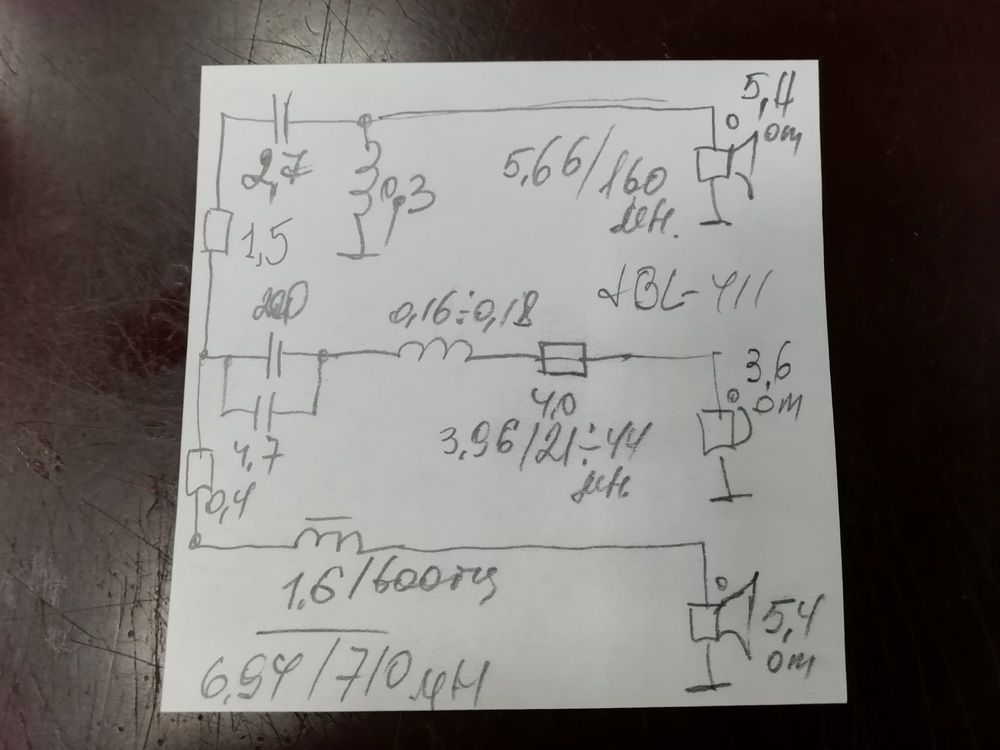 5,4
ом
2,7
0,3
5,66/160
мкн.
1,5
200
0,16÷0,18
JBL-411
3,6
ом
4,0
4,7
3,96/21÷44
мкн.
0,4
1.6/600гц
5,4
ом
6,94/710 мкн